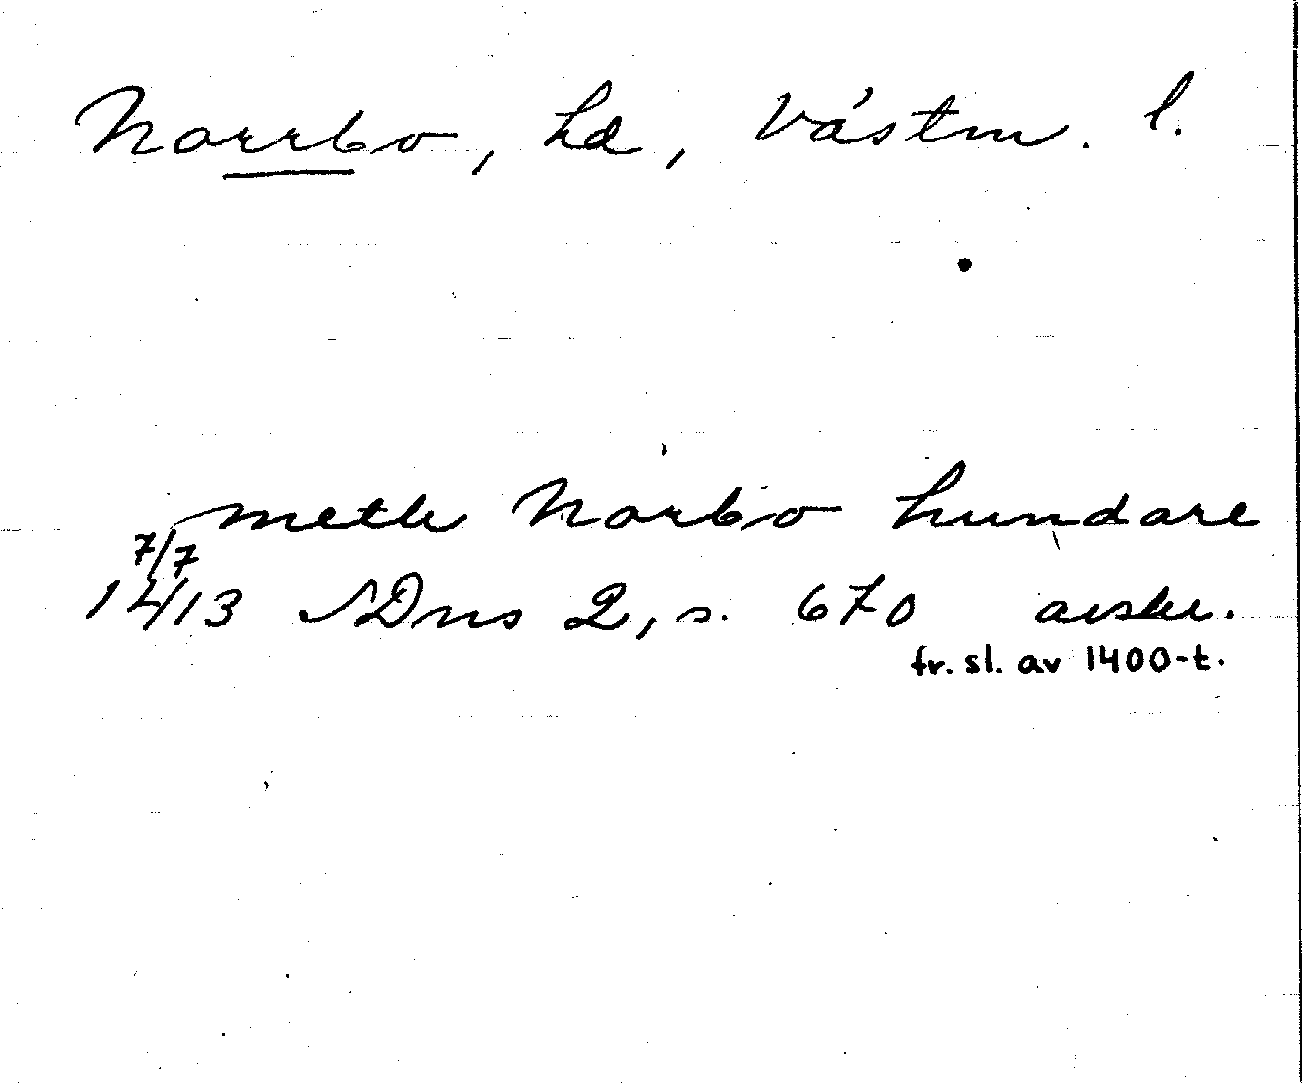 Norrbo, hd, Västm. l.
metle Norbo hundare
7/7
1413 SDns 2, s. 670 avskr.
fr. sl. av 1400-t.